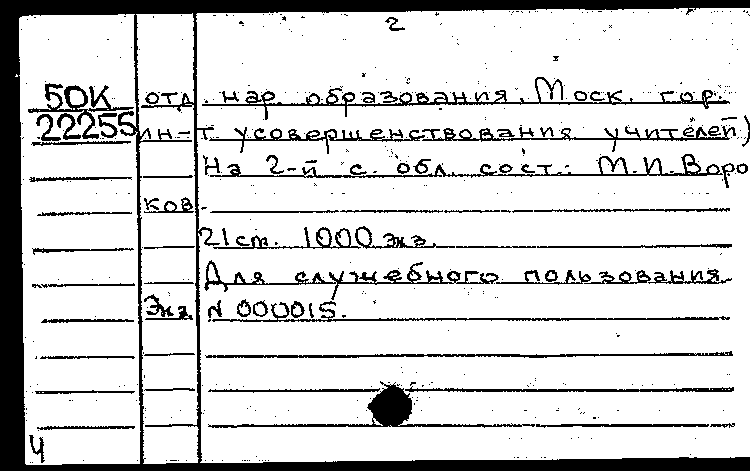 2
50К отд. нар. образования. Моск. гор.
22255 ин-т усовершенствования учителей)
На 2-й с. обл. сост.: М.И. Воро
ков.
21 ст. 1000 экз.
Для служебного пользования
Экз. N 000015.
4